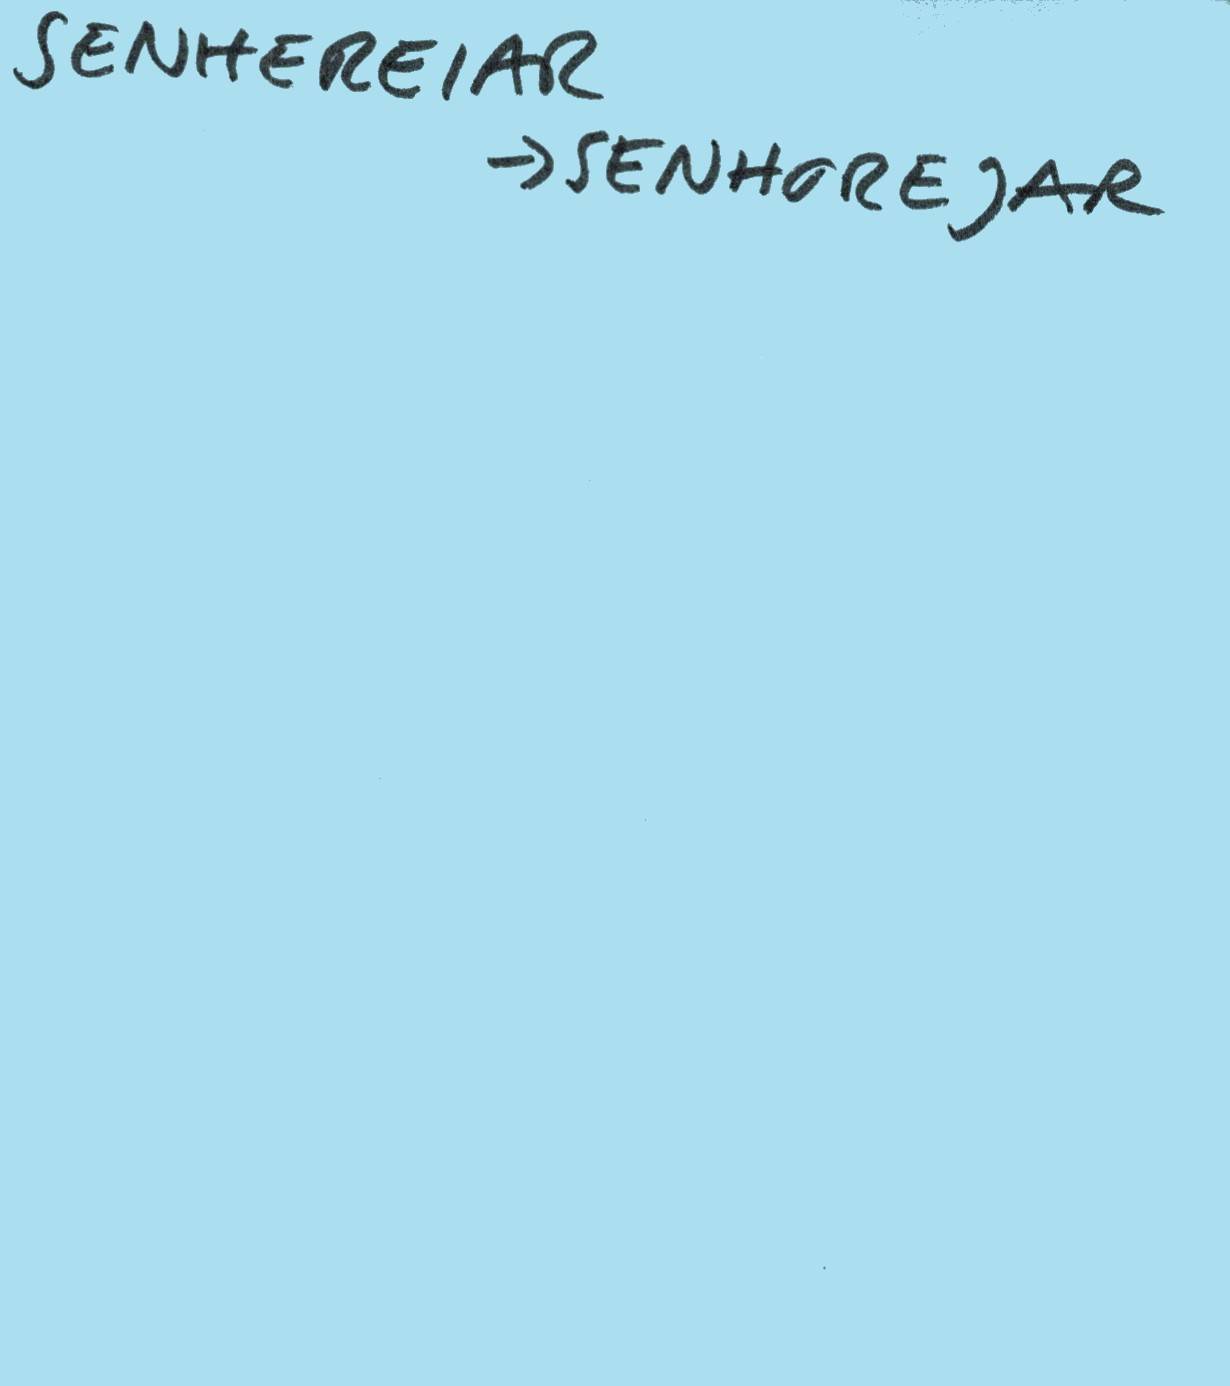 SENHEREIAR
→SENHOREJAR